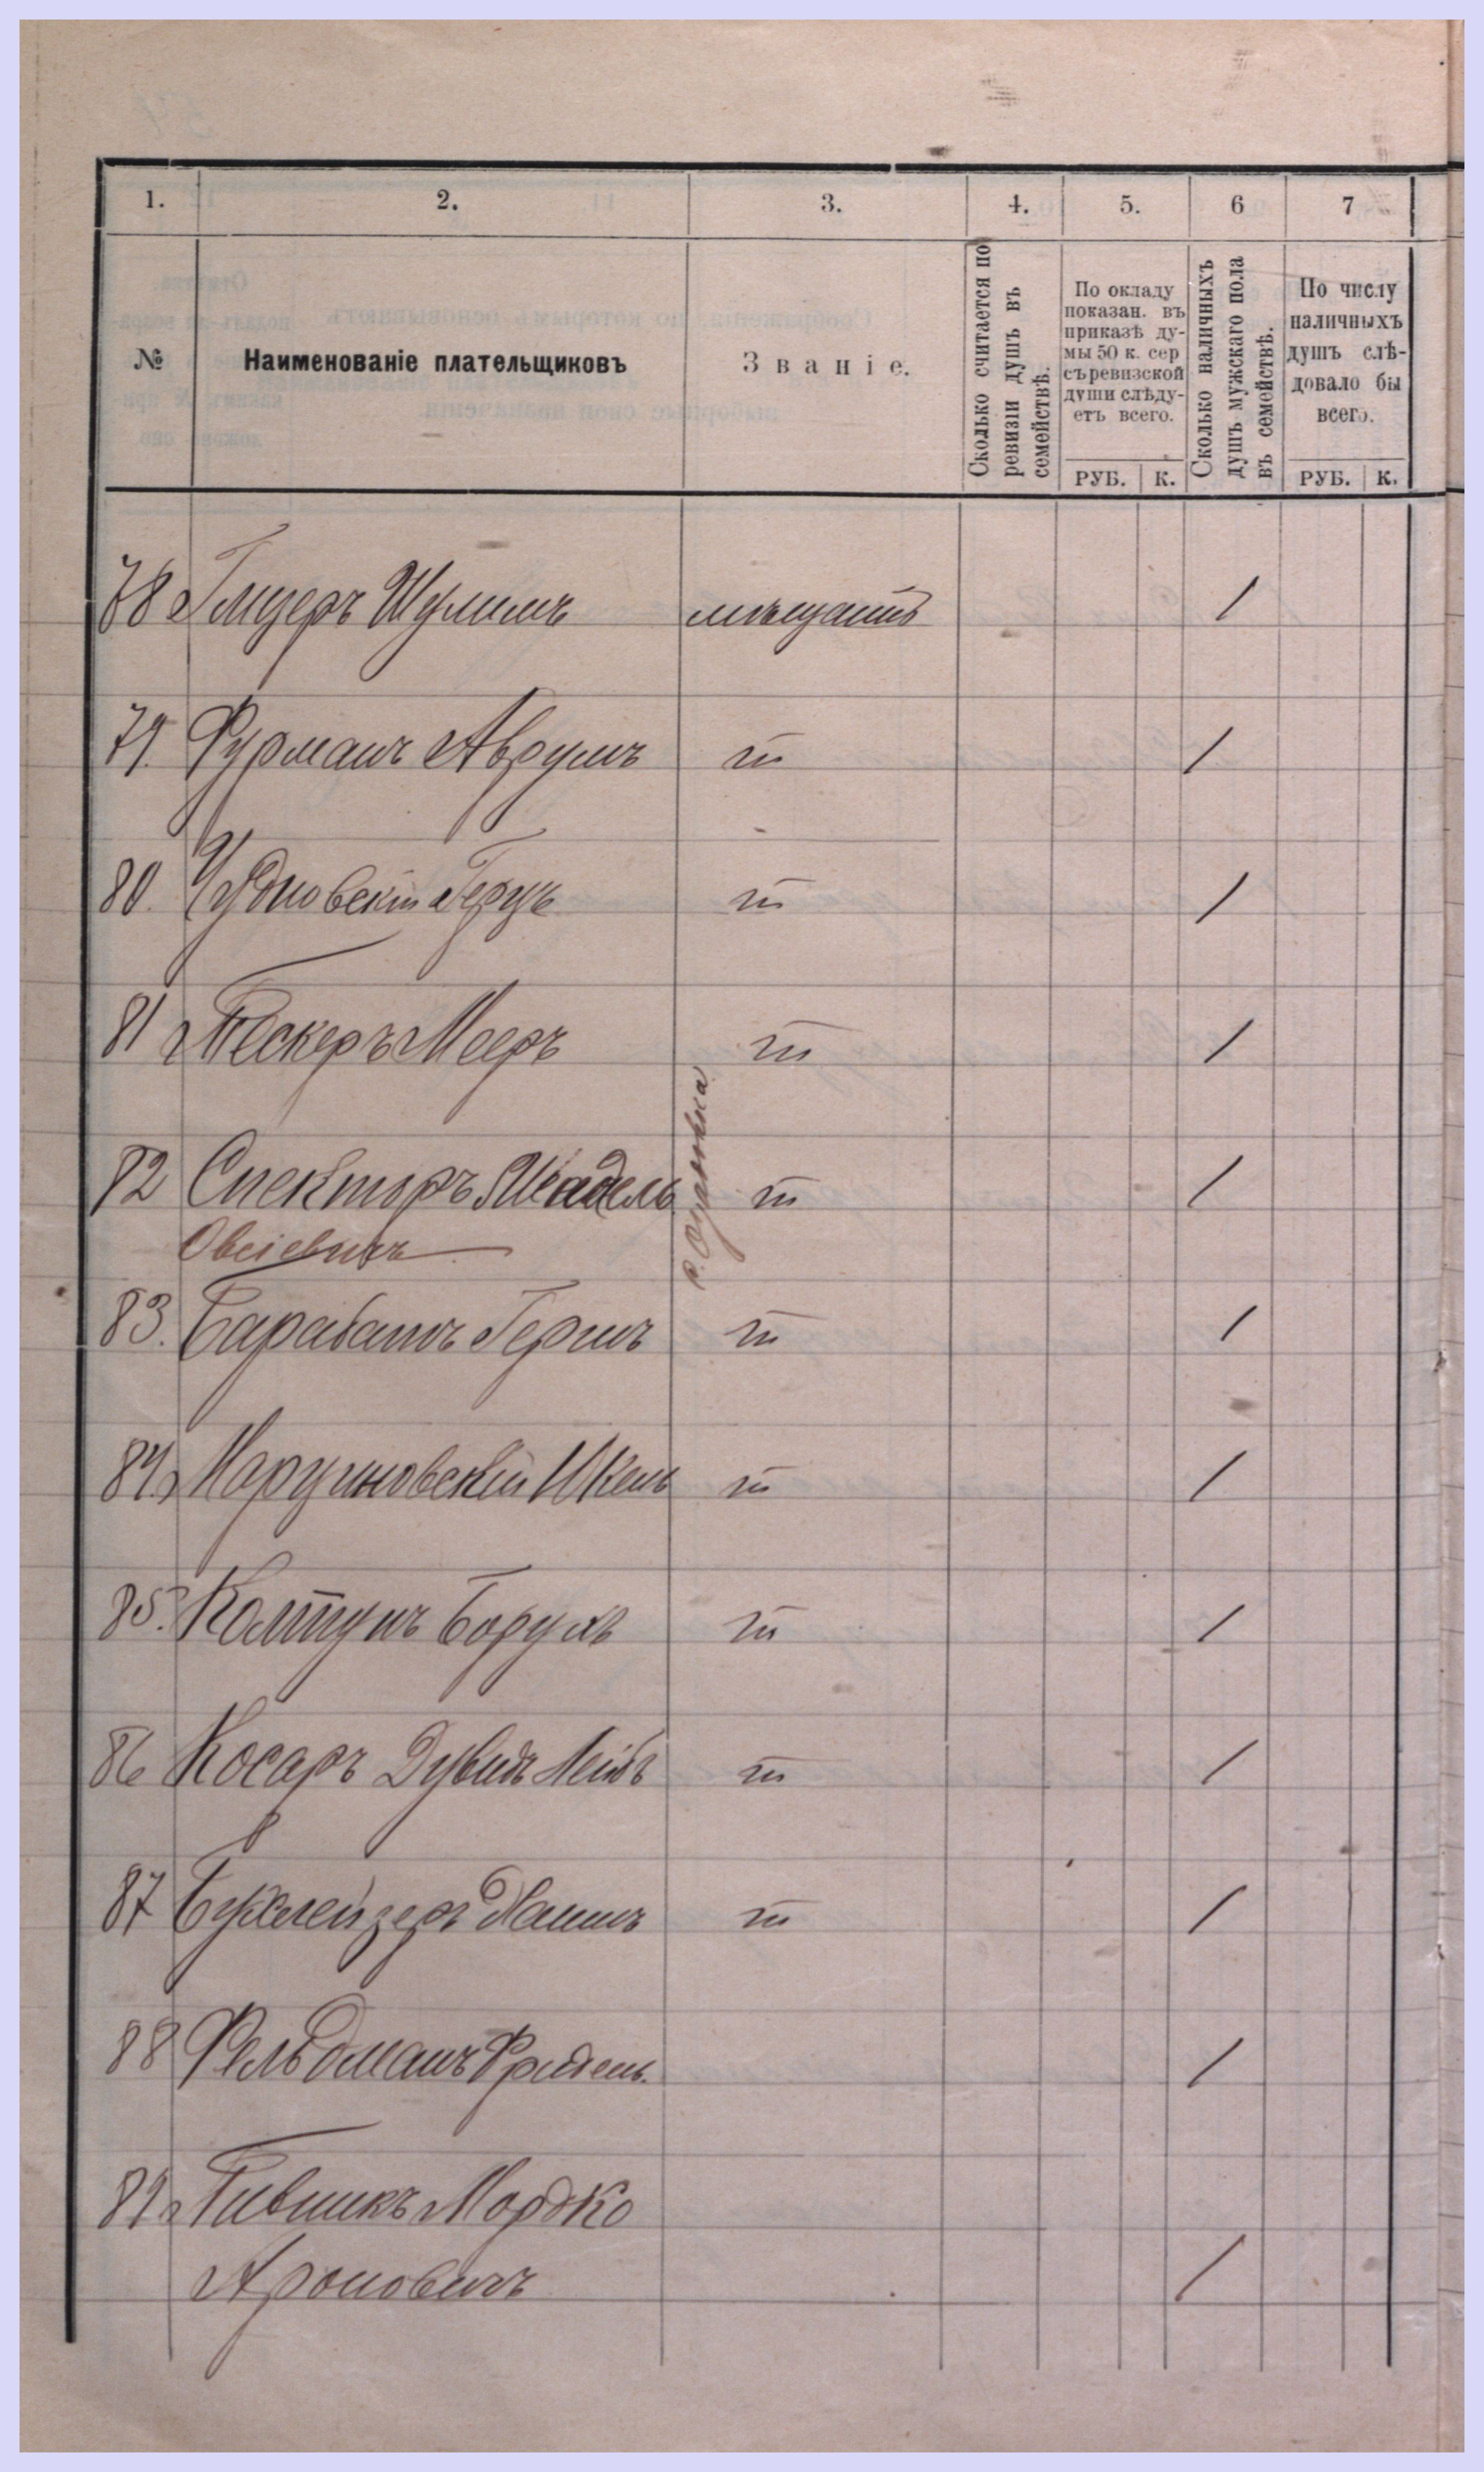 1. 2. 3. 4. 5. 6 7
№
Наименованіе плательщиковъ
Званіе.
Сколько считается по
ревизіи душъ въ
семействѣ.
По окладу
показан. въ
приказѣ ду-
мы 50 к. сер
съ ревизской
души слѣду-
етъ всего.
РУБ. К.
Сколько наличныхъ
душъ мужскаго пола
въ семействѣ.
По числу
наличныхъ
душъ слѣ-
довало бы
всего.
РУБ. К.
78 Шулимъ мѣщанинъ /
79. Фурманъ Аврумъ /
80. Чудновскій Герцъ /
81 Пескеръ Мееръ /
82 Спекторъ /
Овсіевичъ
83. Барабанъ Гершъ /
84. /
85. Колтунъ Борухъ /
86 Косаръ Дувидъ Лейбъ /
87 /
88 Фельдманъ /
89. Пивникъ Мордко
Ароновичъ /